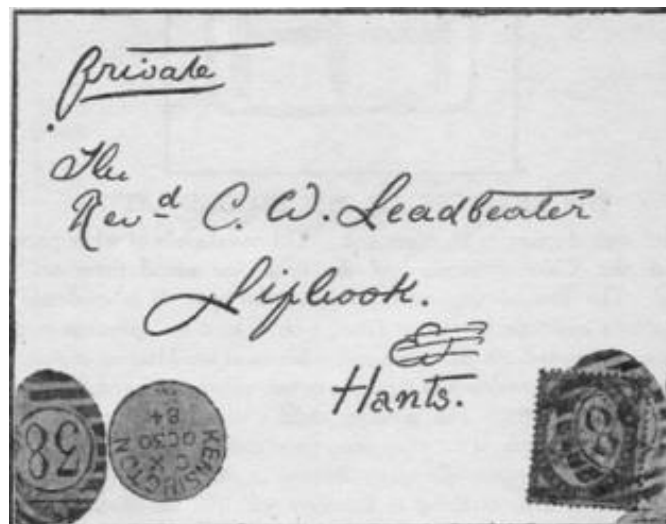 Private
The
Revd C. W. Leadbeater
Liphook.
Hants.
KENSINGTON
C X
OC30
84
38